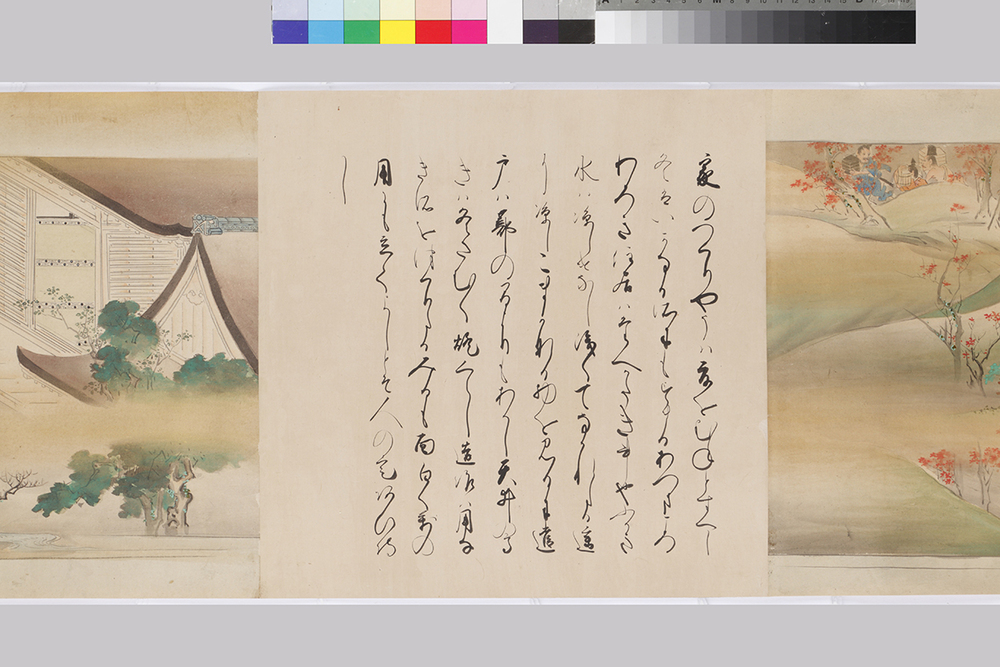 家のつくりやうハ夏をむねとすへし
冬はいかなる所にもすまるあつきころ
わろき住居ハたへかたき事也ふかき
水ハ涼しけなし浅くてなかれたる遥
に涼しこまかなる物を見るに遣
戸ハ蔀のまよりもあかし天井の高
きハ冬さむく燈くらし造作ハ用な
き所をつくりたる見るも面白く万の
用にも立てよしとそ人の定あひ侍
りし